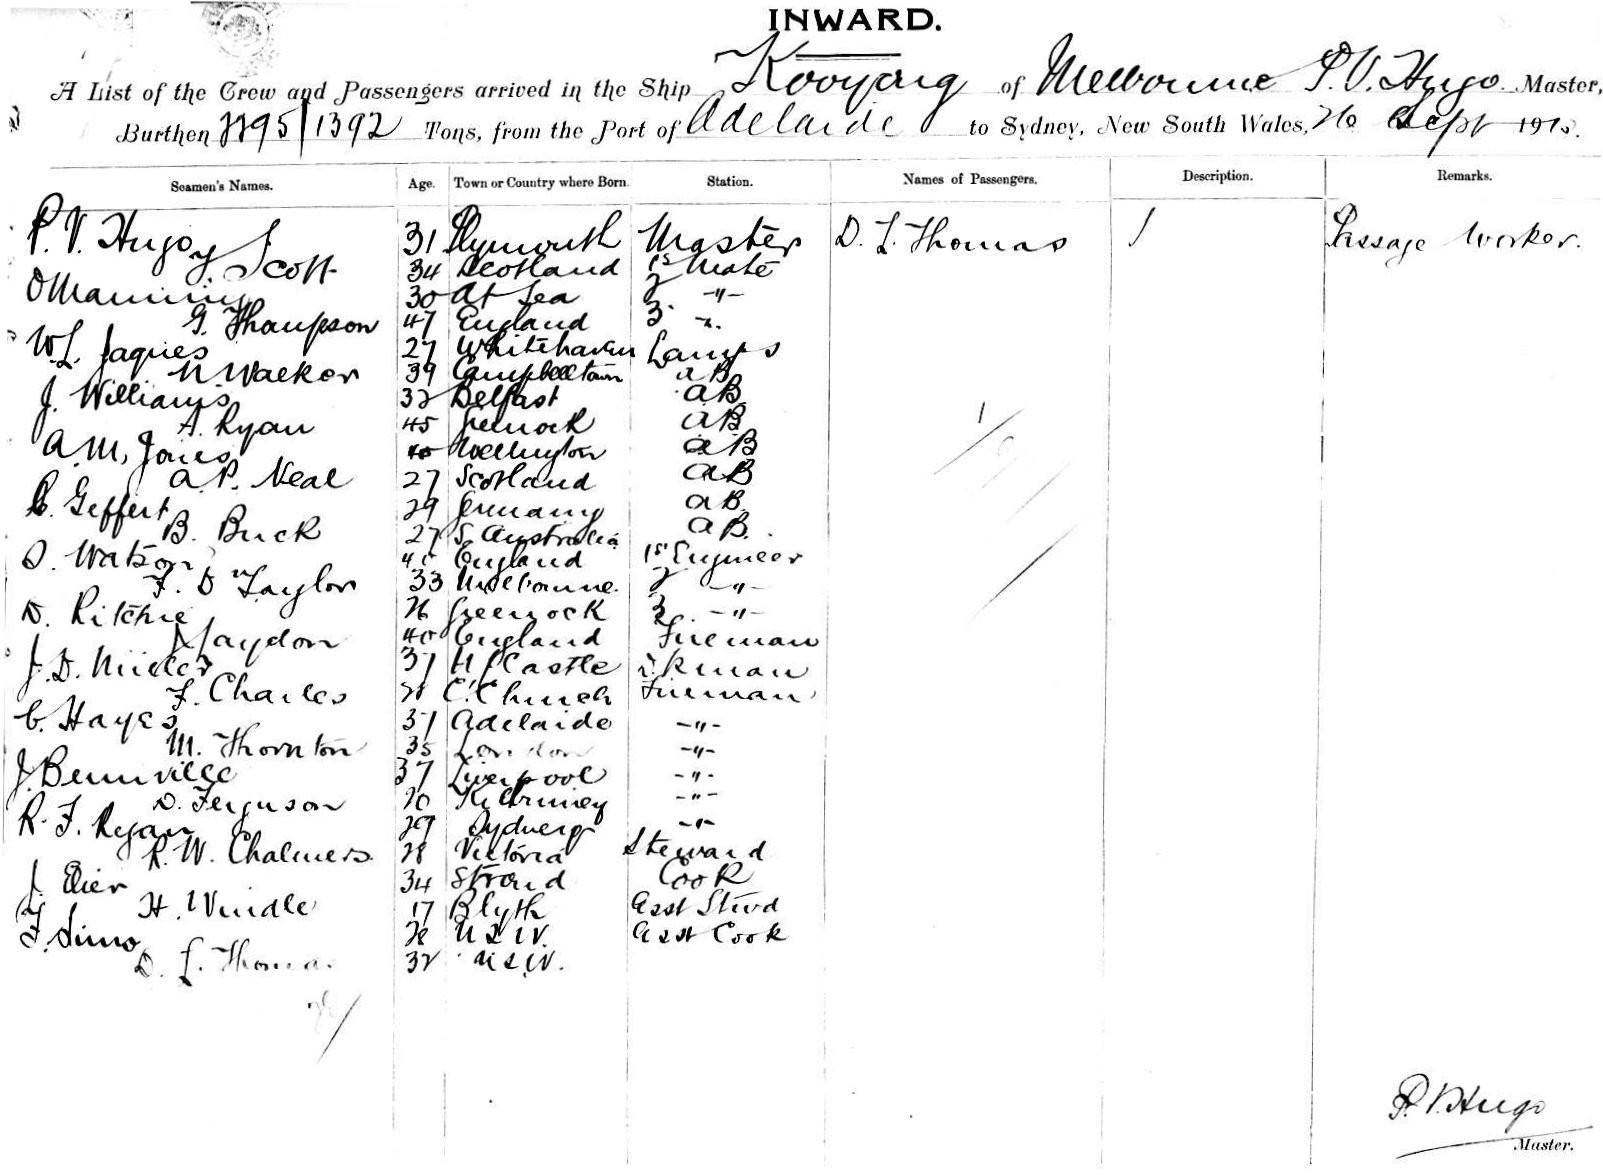 INWARD.
A List of the Crew and Passengers arrived in the Ship Kooyong of Melbourne P. V. Hugo Master,
Burthen 2295/1392 Tons, from the Port of Adelaide to Sydney, New South Wales, 26 Sept 191
Seamen's Names. Age. Town or Country where Born. Station. Names of Passengers. Description. Remarks.
P. V. Hugo 31 Plymouth Master D. L. Thomas 1 Passage Worker.
J Scott 34 Scotland 1st Mate
O Manning 30 At Sea 2 -"-
G. Thompson 47 England 3 -"-
W. L. Jaques 27 Whitehaven Lamps
N Walker 39 Campbelltown AB
J. Williams 32 Belfast AB
A. Ryan 45 Greenock AB
A. M. Jones 40 Wellington AB
A. P. Neal 27 Scotland AB
C. Geffert 29 Germany AB
B. Buck 27 S. Australia AB.
S. Watson England 1st Engineer
F. D Taylor 33 Melbourne. 2 -"-
D. Ritchie 26 Greenock 3 -"-
Haydon 40 England Fireman
J. D. Miller 37 N/Castle Dkman
F. Charles 28 C. Church Fireman
C. Hayes 37 Adelaide -"-
M. Thornton 35 London -"-
J. Bennville 37 Liverpool -"-
D. Ferguson -"-
R. F. Ryan 29 Sydney -"-
R. W. Chalmers 28 Victoria Steward
J. 34 Stroud Cook
H. Windle 17 Blyth Asst Stwd
F. Sims 28 NSW. Asst Cook
D. L. Thomas 32 NSW.
P. V. Hugo
Master.